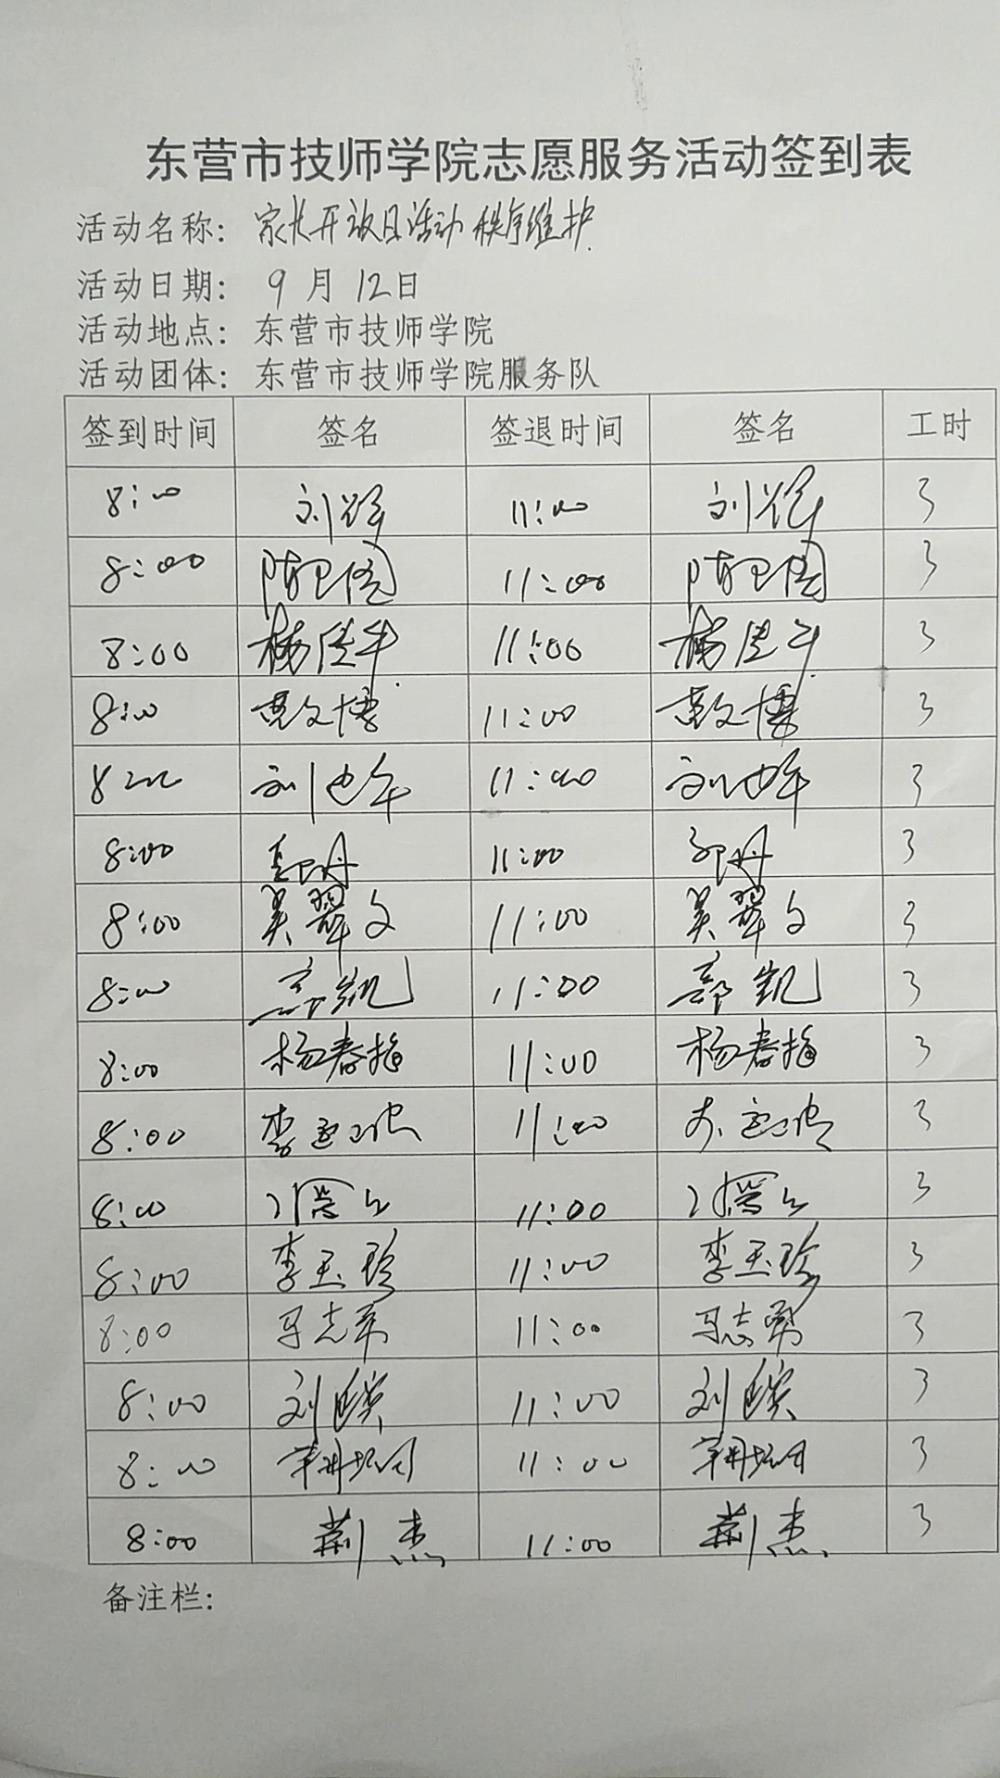 东营市技师学院志愿服务活动签到表
活动名称: 家长开放日活动秩序维护
活动日期: 9月12日
活动地点: 东营市技师学院
活动团体: 东营市技师学院服务队
签到时间 签名 签退时间 签名 工时
8:00 刘 11:00 刘 3
8:00 陈卫国 11:00 陈卫国 3
8:00 杨佳华 11:00 杨佳华 3
8:00 文博 11:00 文博 3
8:00 刘 11:00 刘 3
8:00 11:00 3
8:00 吴翠文 11:00 吴翠文 3
8:00 郭凯 11:00 郭凯 3
8:00 杨春梅 11:00 杨春梅 3
8:00 李 11:00 李 3
8:00 11:00 3
8:00 李玉珍 11:00 李玉珍 3
8:00 马志勇 11:00 马志勇 3
8:00 刘 11:00 刘 3
8:00 11:00 3
8:00 荆杰 11:00 荆杰 3
备注栏: